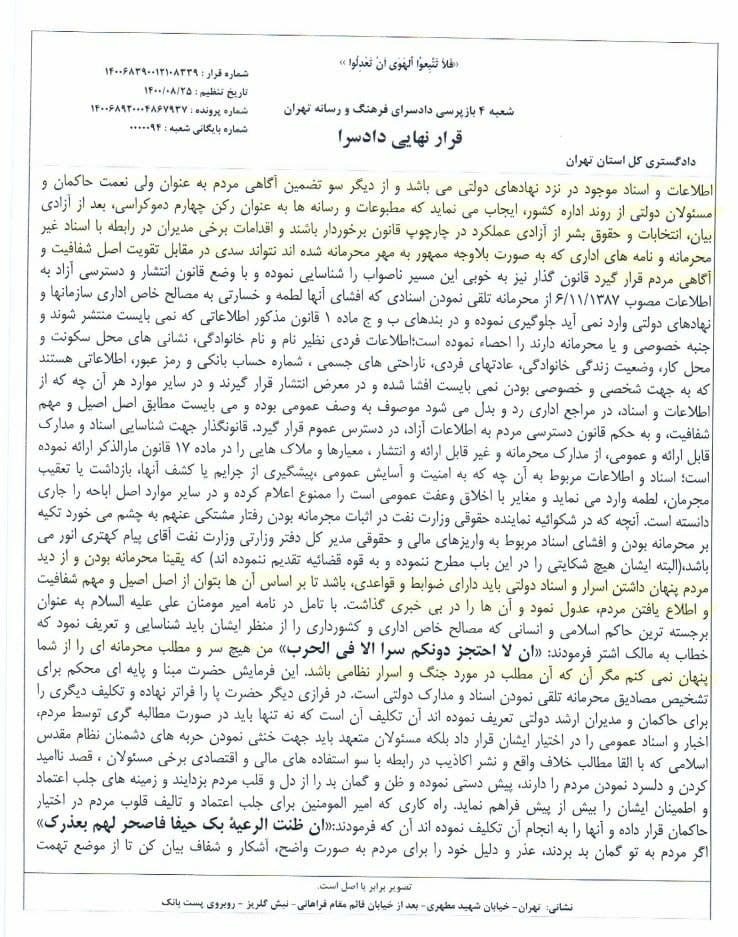 «فَلاَ تَتَّبِعُوا الْهَوَى أَنْ تَعْدِلُوا»
شماره قرار : ۱۴۰۰۶۸۳۹۰۰۱۲۱۰۸۳۳۹
تاریخ تنظیم : ۱۴۰۰/۰۸/۲۵
شماره پرونده : ۱۴۰۰۶۸۹۲۰۰۰۴۸۶۷۹۳۷
شماره بایگانی شعبه : ۰۰۰۰۰۹۴
شعبه ۴ بازپرسی دادسرای فرهنگ و رسانه تهران
قرار نهایی دادسرا
دادگستری کل استان تهران
اطلاعات و اسناد موجود در نزد نهادهای دولتی می باشد و از دیگر سو تضمین آگاهی مردم به عنوان ولی نعمت حاکمان و
مسئولان دولتی از روند اداره کشور، ایجاب می نماید که مطبوعات و رسانه ها به عنوان رکن چهارم دموکراسی، بعد از آزادی
بیان، انتخابات و حقوق بشر از آزادی عملکرد در چارچوب قانون برخوردار باشند و اقدامات برخی مدیران در رابطه با اسناد غیر
محرمانه و نامه های اداری که به صورت بلاوجه ممهور به مهر محرمانه شده اند نتواند سدی در مقابل تقویت اصل شفافیت و
آگاهی مردم قرار گیرد قانون گذار نیز به خوبی این مسیر ناصواب را شناسایی نموده و با وضع قانون انتشار و دسترسی آزاد به
اطلاعات مصوب ۶/۱۱/۱۳۸۷ از محرمانه تلقی نمودن اسنادی که افشای آنها لطمه و خسارتی به مصالح خاص اداری سازمانها و
نهادهای دولتی وارد نمی آید جلوگیری نموده و در بندهای ب و ج ماده ۱ قانون مذکور اطلاعاتی که نمی بایست منتشر شوند و
جنبه خصوصی و یا محرمانه دارند را احصاء نموده است؛اطلاعات فردی نظیر نام و نام خانوادگی، نشانی های محل سکونت و
محل کار، وضعیت زندگی خانوادگی، عادتهای فردی، ناراحتی های جسمی ، شماره حساب بانکی و رمز عبور، اطلاعاتی هستند
که به جهت شخصی و خصوصی بودن نمی بایست افشا شده و در معرض انتشار قرار گیرند و در سایر موارد هر آن چه که از
اطلاعات و اسناد، در مراجع اداری رد و بدل می شود موصوف به وصف عمومی بوده و می بایست مطابق اصل اصیل و مهم
شفافیت، و به حکم قانون دسترسی مردم به اطلاعات آزاد، در دسترس عموم قرار گیرد. قانونگذار جهت شناسایی اسناد و مدارک
قابل ارائه و عمومی، از مدارک محرمانه و غیر قابل ارائه و انتشار ، معیارها و ملاک هایی را در ماده ۱۷ قانون مارالذکر ارائه نموده
است؛ اسناد و اطلاعات مربوط به آن چه که به امنیت و آسایش عمومی ،پیشگیری از جرایم یا کشف آنها، بازداشت یا تعقیب
مجرمان، لطمه وارد می نماید و مغایر با اخلاق وعفت عمومی است را ممنوع اعلام کرده و در سایر موارد اصل اباحه را جاری
دانسته است. آنچه که در شکوائیه نماینده حقوقی وزارت نفت در اثبات مجرمانه بودن رفتار مشتکی عنهم به چشم می خورد تکیه
بر محرمانه بودن و افشای اسناد مربوط به واریزهای مالی و حقوقی مدیر کل دفتر وزارتی وزارت نفت آقای پیام کهتری انور می
باشد،(البته ایشان هیچ شکایتی را در این باب مطرح ننموده و به قوه قضائیه تقدیم ننموده اند) که یقینا محرمانه بودن و از دید
مردم پنهان داشتن اسرار و اسناد دولتی باید دارای ضوابط و قواعدی، باشد تا بر اساس آن ها بتوان از اصل اصیل و مهم شفافیت
و اطلاع یافتن مردم، عدول نمود و آن ها را در بی خبری گذاشت. با تامل در نامه امیر مومنان علی علیه السلام به عنوان
برجسته ترین حاکم اسلامی و انسانی که مصالح خاص اداری و کشورداری را از منظر ایشان باید شناسایی و تعریف نمود که
خطاب به مالک اشتر فرمودند: «ان لا احتجز دونکم سرا الا فی الحرب» من هیچ سر و مطلب محرمانه ای را از شما
پنهان نمی کنم مگر آن که آن مطلب در مورد جنگ و اسرار نظامی باشد. این فرمایش حضرت مبنا و پایه ای محکم برای
تشخیص مصادیق محرمانه تلقی نمودن اسناد و مدارک دولتی است. در فرازی دیگر حضرت پا را فراتر نهاده و تکلیف دیگری را
برای حاکمان و مدیران ارشد دولتی تعریف نموده اند آن تکلیف آن است که نه تنها باید در صورت مطالبه گری توسط مردم،
اخبار و اسناد عمومی را در اختیار ایشان قرار داد بلکه مسئولان متعهد باید جهت خنثی نمودن حربه های دشمنان نظام مقدس
اسلامی که با القا مطالب خلاف واقع و نشر اکاذیب در رابطه با سو استفاده های مالی و اقتصادی برخی مسدولان ، قصد ناامید
کردن و دلسرد نمودن مردم را دارند، پیش دستی نموده و ظن و گمان بد را از دل و قلب مردم بزدایند و زمینه های جلب اعتماد
و اطمینان ایشان را بیش از پیش فراهم نماید. راه کاری که امیر المومنین برای جلب اعتماد و تالیف قلوب مردم در اختیار
حاکمان قرار داده و آنها را به انجام آن تکلیف نموده اند آن که فرمودند:«ان ظنت الرعیة بک حیفا فاصحر لهم بعذرک»
اگر مردم به تو گمان بد بردند، عذر و دلیل خود را برای مردم به صورت واضح، آشکار و شفاف بیان کن تا از موضع تهمت
تصویر برابر با اصل است.
نشانی: تهران- خیابان شهید مطهری- بعد از خیابان قائم مقام فراهانی- نبش گلریز - روبروی پست بانک